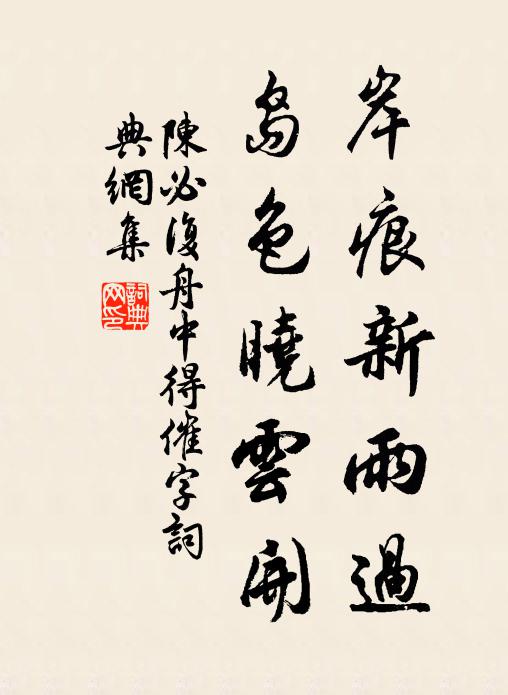 岸痕新雨過
島色曉雲開
陳必復舟中得催字詞
典網集
詞典網印